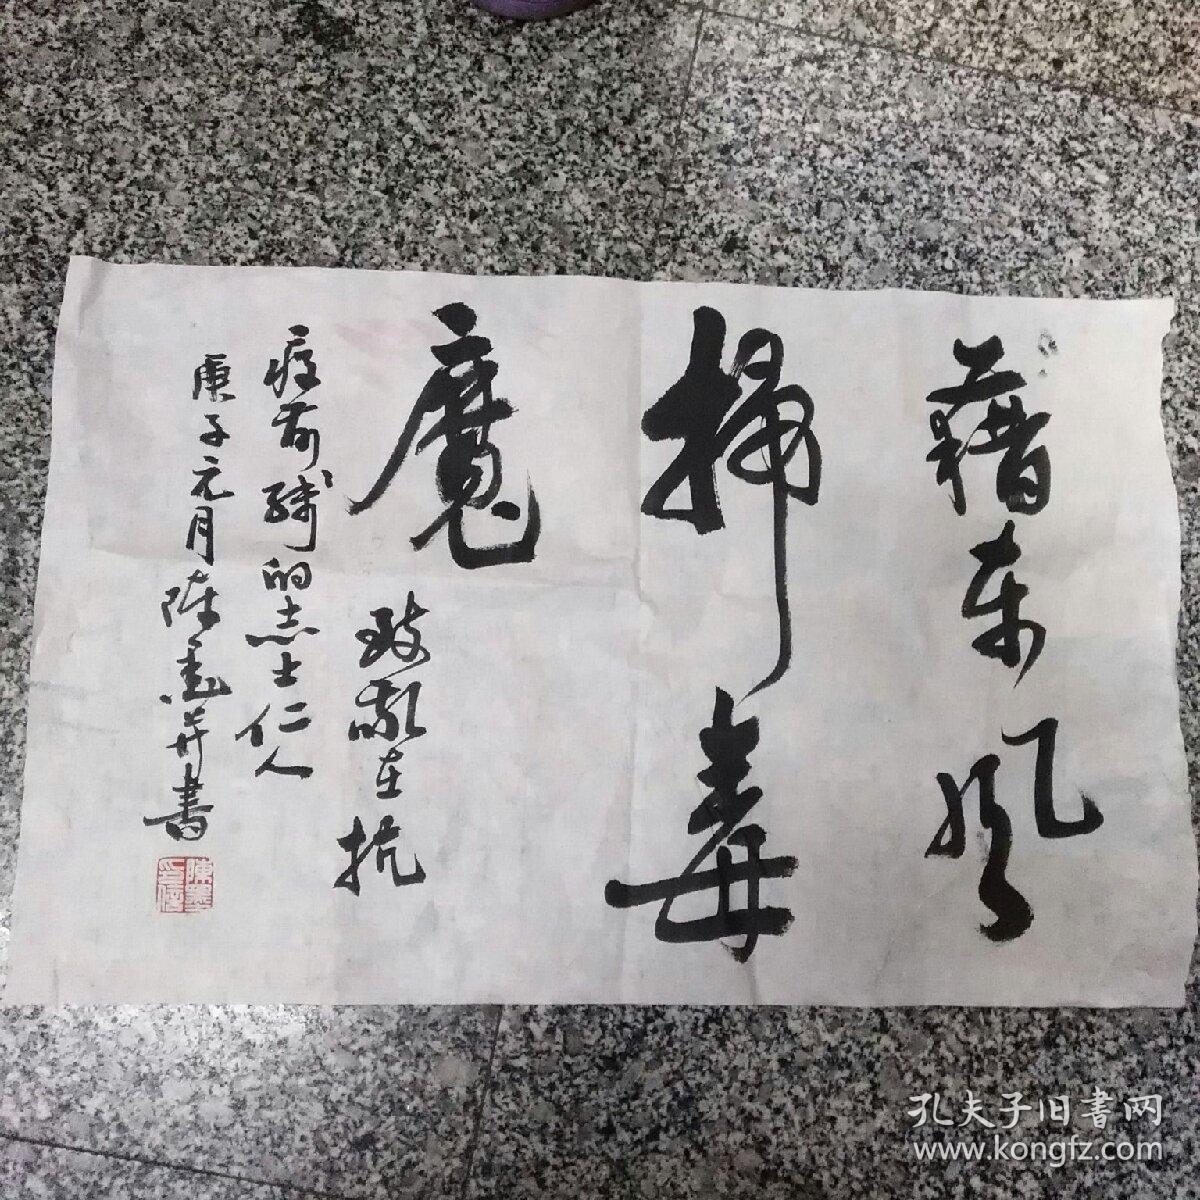 藉东风
掃毒
魔
致敬在抗
疫前线的志士仁人
庚子元月陈墨并書
陳墨
孔夫子旧書网
www.kongfz.com